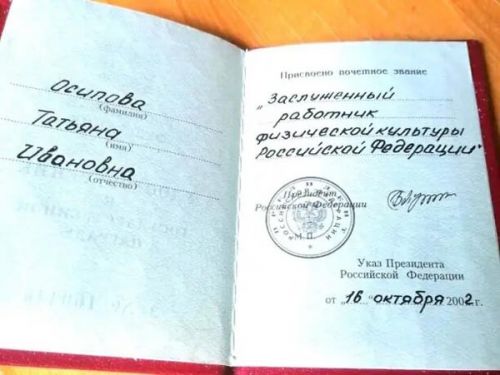 Осипова
(фамилия)
Татьяна
(имя)
Ивановна
(отчество)
Присвоено почетное звание
„Заслуженный
работник
физической культуры
Российской Федерации"
Президент
Российской Федерации
М.П.
Указ Президента
Российской Федерации
от „16" октября 2002 г.